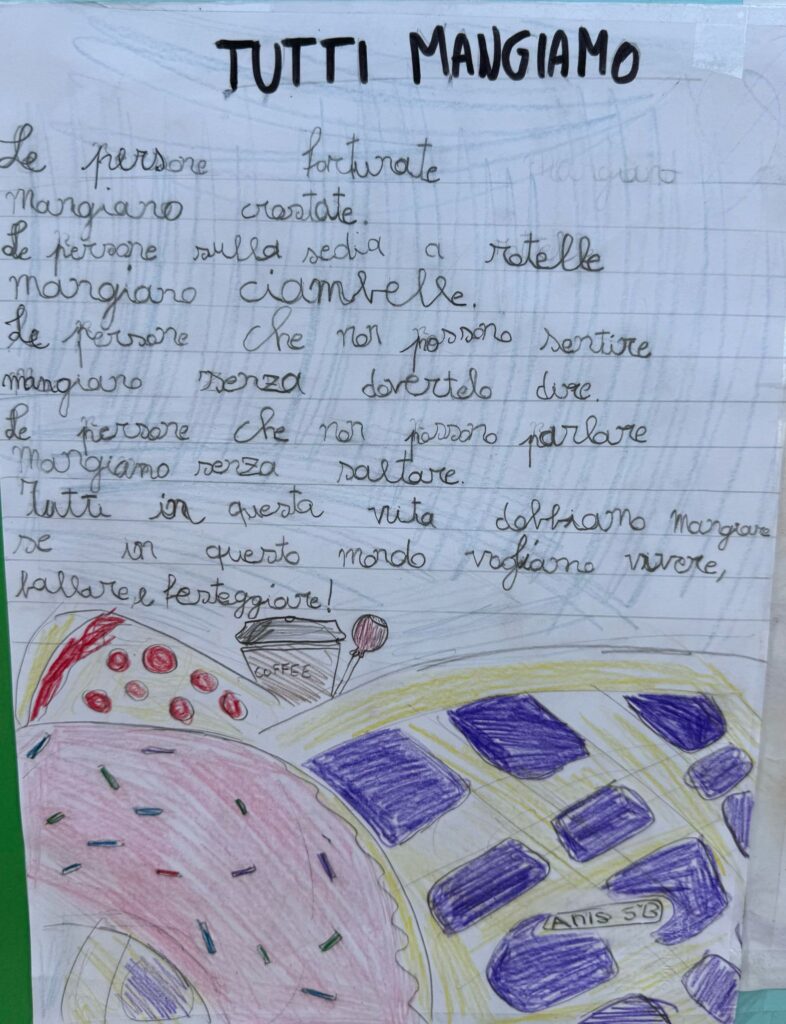 TUTTI MANGIAMO
Le persone fortunate mangiano
mangiano crostate.
Le persone sulla sedia a rotelle
mangiano ciambelle.
Le persone che non possono sentire
mangiano senza dovertelo dire.
Le persone che non possono parlare
mangiamo senza saltare.
Tutti in questa vita dobbiamo mangiare
se in questo mondo vogliamo vivere,
ballare, e festeggiare!
COFFEE
Anis 5°B